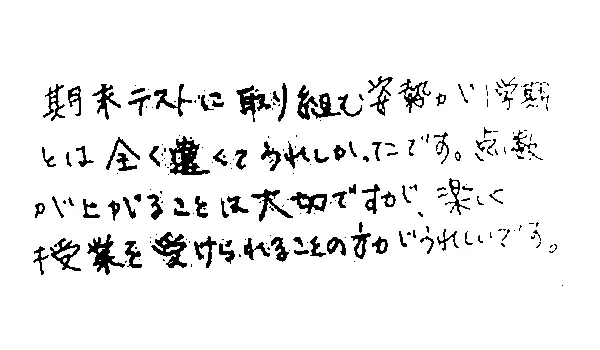 期末テストに取り組む姿勢が1学期
とは全く違くてうれしかったです。点数
が上がることは大切ですが、楽しく
授業を受けられることの方がうれしいです。